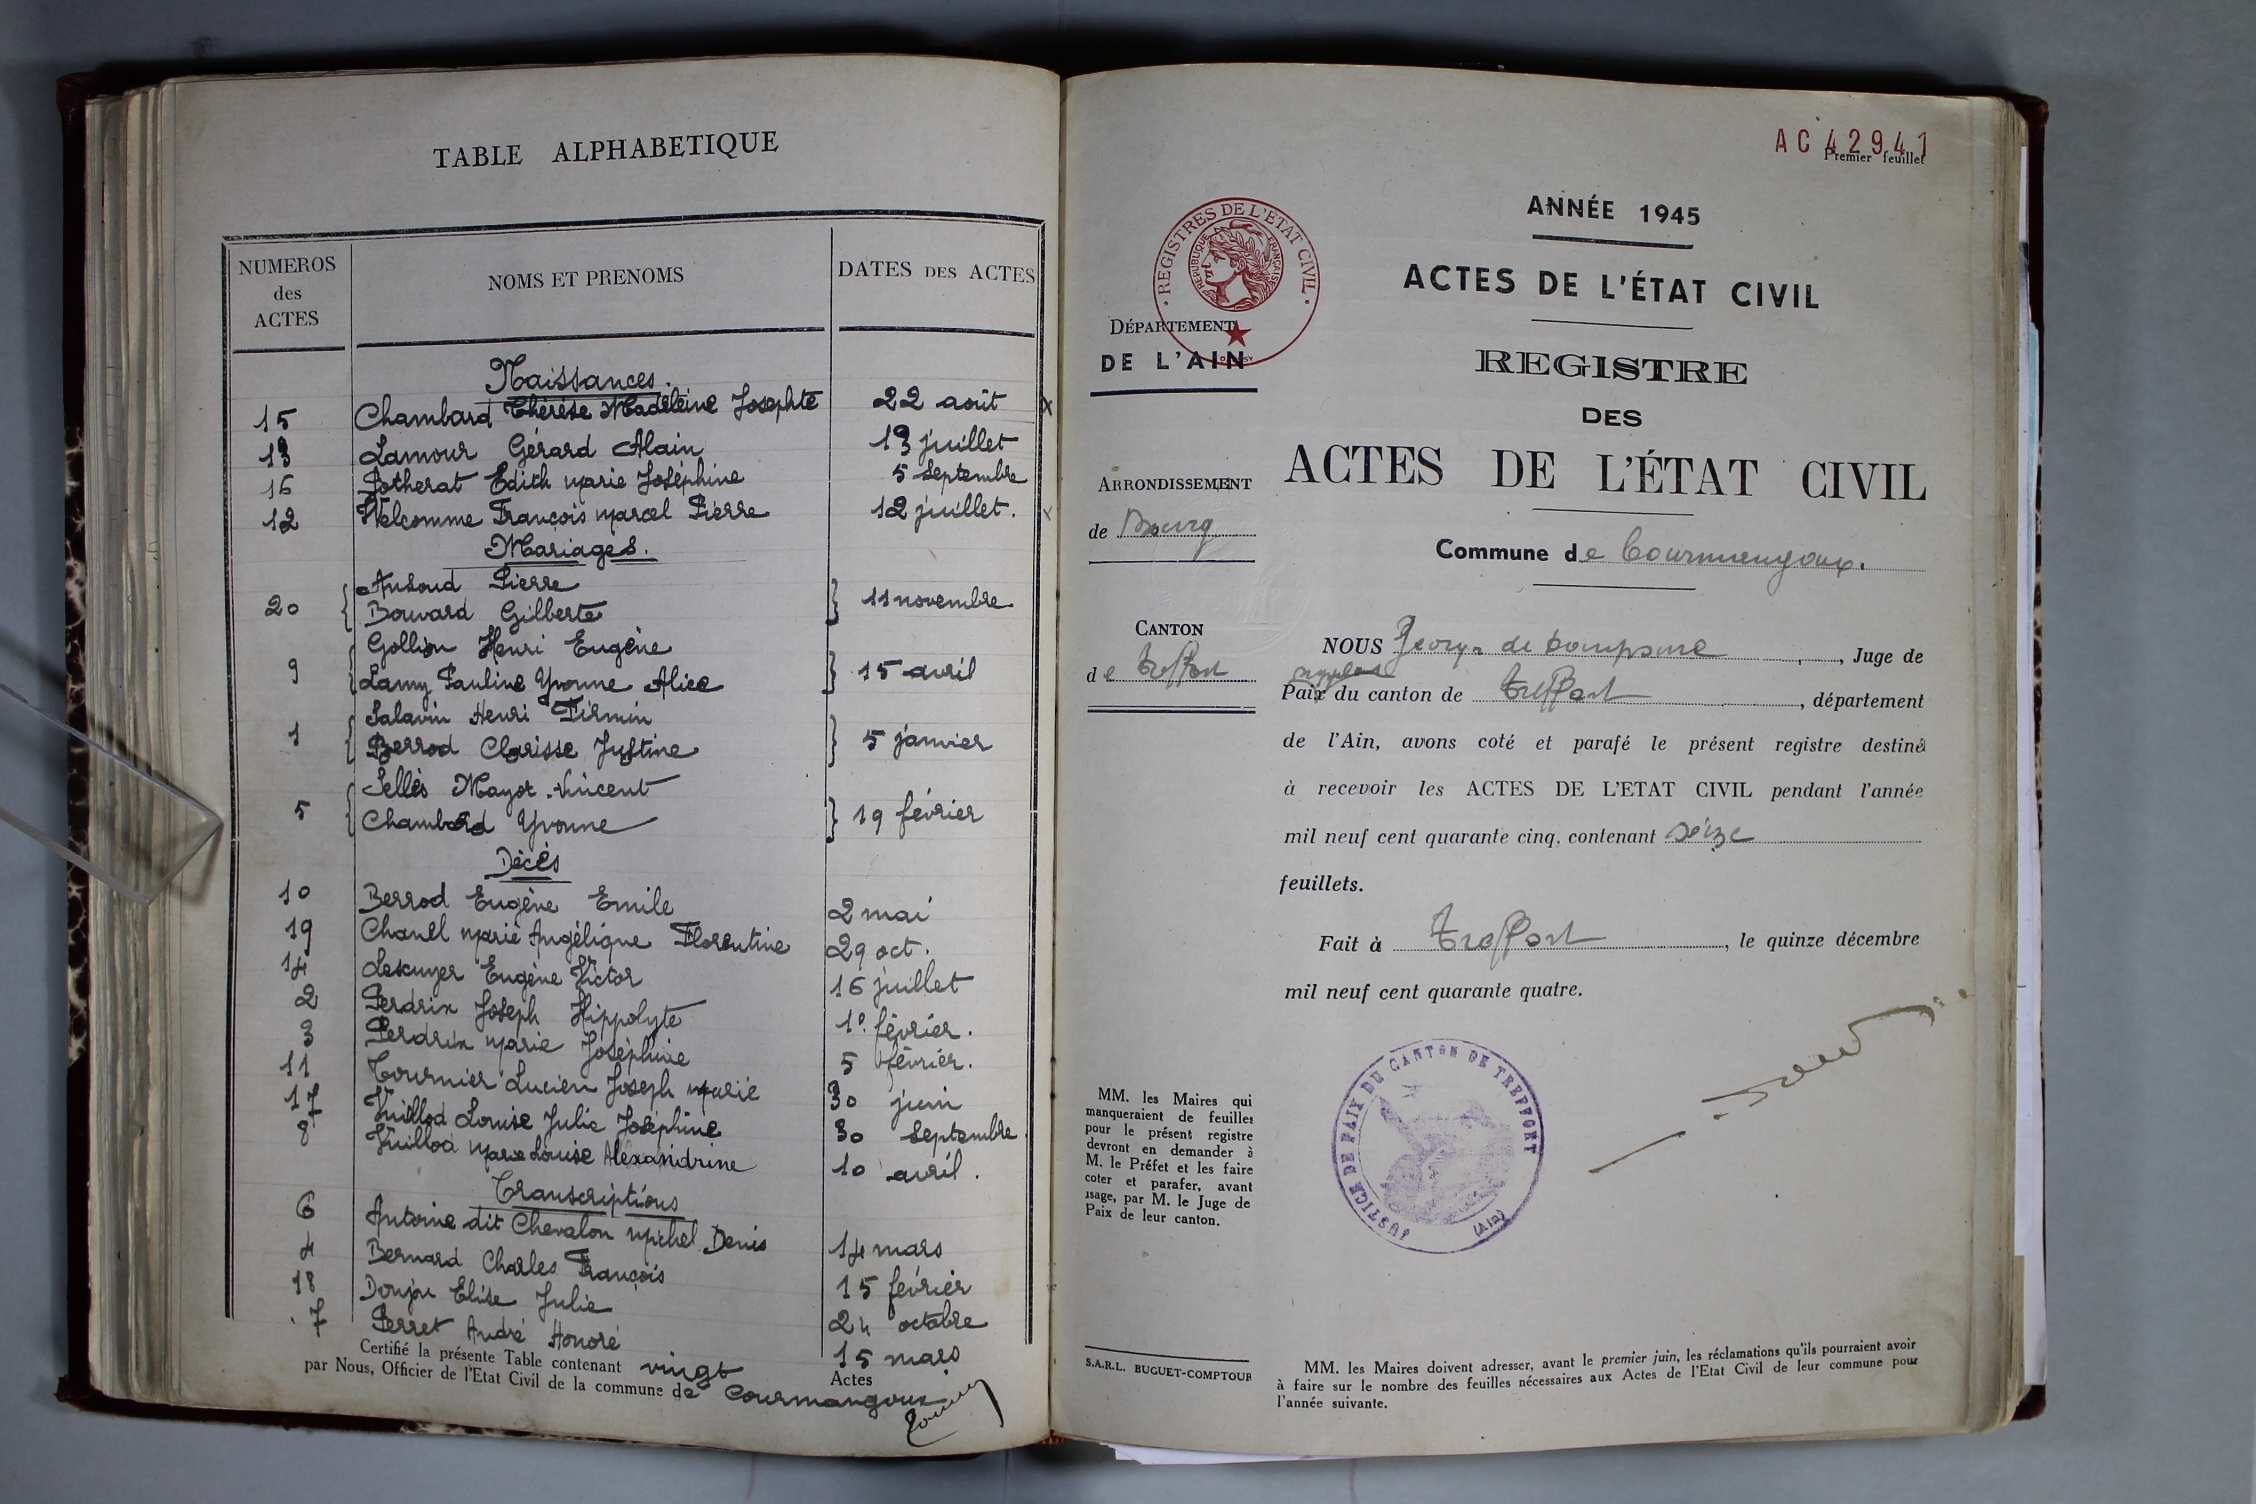 TABLE ALPHABETIQUE
NUMEROS des ACTES NOMS ET PRENOMS DATES DES ACTES
Naissances.
15 Chambard Thérèse Madeleine Josephte 22 août x
13 Lamour Gérard Alain 13 juillet
16 Potherat Edith Marie Joséphine 5 septembre
12 Welcomme François Marcel Pierre 12 juillet. x
Mariages.
Pierre
20 { Bouvard Gilberte } 11 novembre
Gollion Henri Eugène
9 { Lamy Pauline Yvonne Alice } 15 avril
Salavin Henri Firmin
1 { Berrod Clarisse Justine } 5 janvier
Sellès Mayor Vincent
5 { Chambard Yvonne } 19 février
Décès
10 Berrod Eugène Emile 2 mai
19 Chanel Marie Angélique Florentine 29 oct.
14 Lescuyer Eugène Victor 16 juillet
2 Perdrix Joseph Hippolyte 1º février.
3 Perdrix Marie Joséphine 5 février.
11 Tournier Lucien Joseph Marie 30 juin
17 Vuillod Louise Julie Joséphine 30 septembre.
8 Vuillod Marie Louise Alexandrine 10 avril.
Transcriptions
6 Antoine dit Chevalon Michel Denis 14 mars
4 Bernard Charles François 15 février
18 Donjon Elise Julie 24 octobre
7 Perret André Honoré 15 mars
Certifié la présente Table contenant vingt Actes
par Nous, Officier de l'Etat Civil de la commune de Courmangoux
AC 42941
Premier feuillet
ANNÉE 1945
ACTES DE L'ÉTAT CIVIL
REGISTRES DE L'ETAT CIVIL
REPUBLIQUE FRANÇAISE
DÉPARTEMENT
DE L'AIN
REGISTRE
DES
ACTES DE L'ÉTAT CIVIL
ARRONDISSEMENT
de Bourg
Commune de Courmangoux.
CANTON
de Treffort
NOUS Georges de , Juge de
suppléant
Paix du canton de Treffort, département
de l'Ain, avons coté et parafé le présent registre destiné
à recevoir les ACTES DE L'ETAT CIVIL pendant l'année
mil neuf cent quarante cinq, contenant seize
feuillets.
Fait à Treffort, le quinze décembre
mil neuf cent quarante quatre.
JUSTICE DE PAIX DU CANTON DE TREFFORT
(Ain)
MM. les Maires qui
manqueraient de feuilles
pour le présent registre
devront en demander à
M. le Préfet et les faire
coter et parafer, avant
usage, par M. le Juge de
Paix de leur canton.
S.A.R.L. BUGUET-COMPTOUR
MM. les Maires doivent adresser, avant le premier juin, les réclamations qu'ils pourraient avoir
à faire sur le nombre des feuilles nécessaires aux Actes de l'Etat Civil de leur commune pour
l'année suivante.